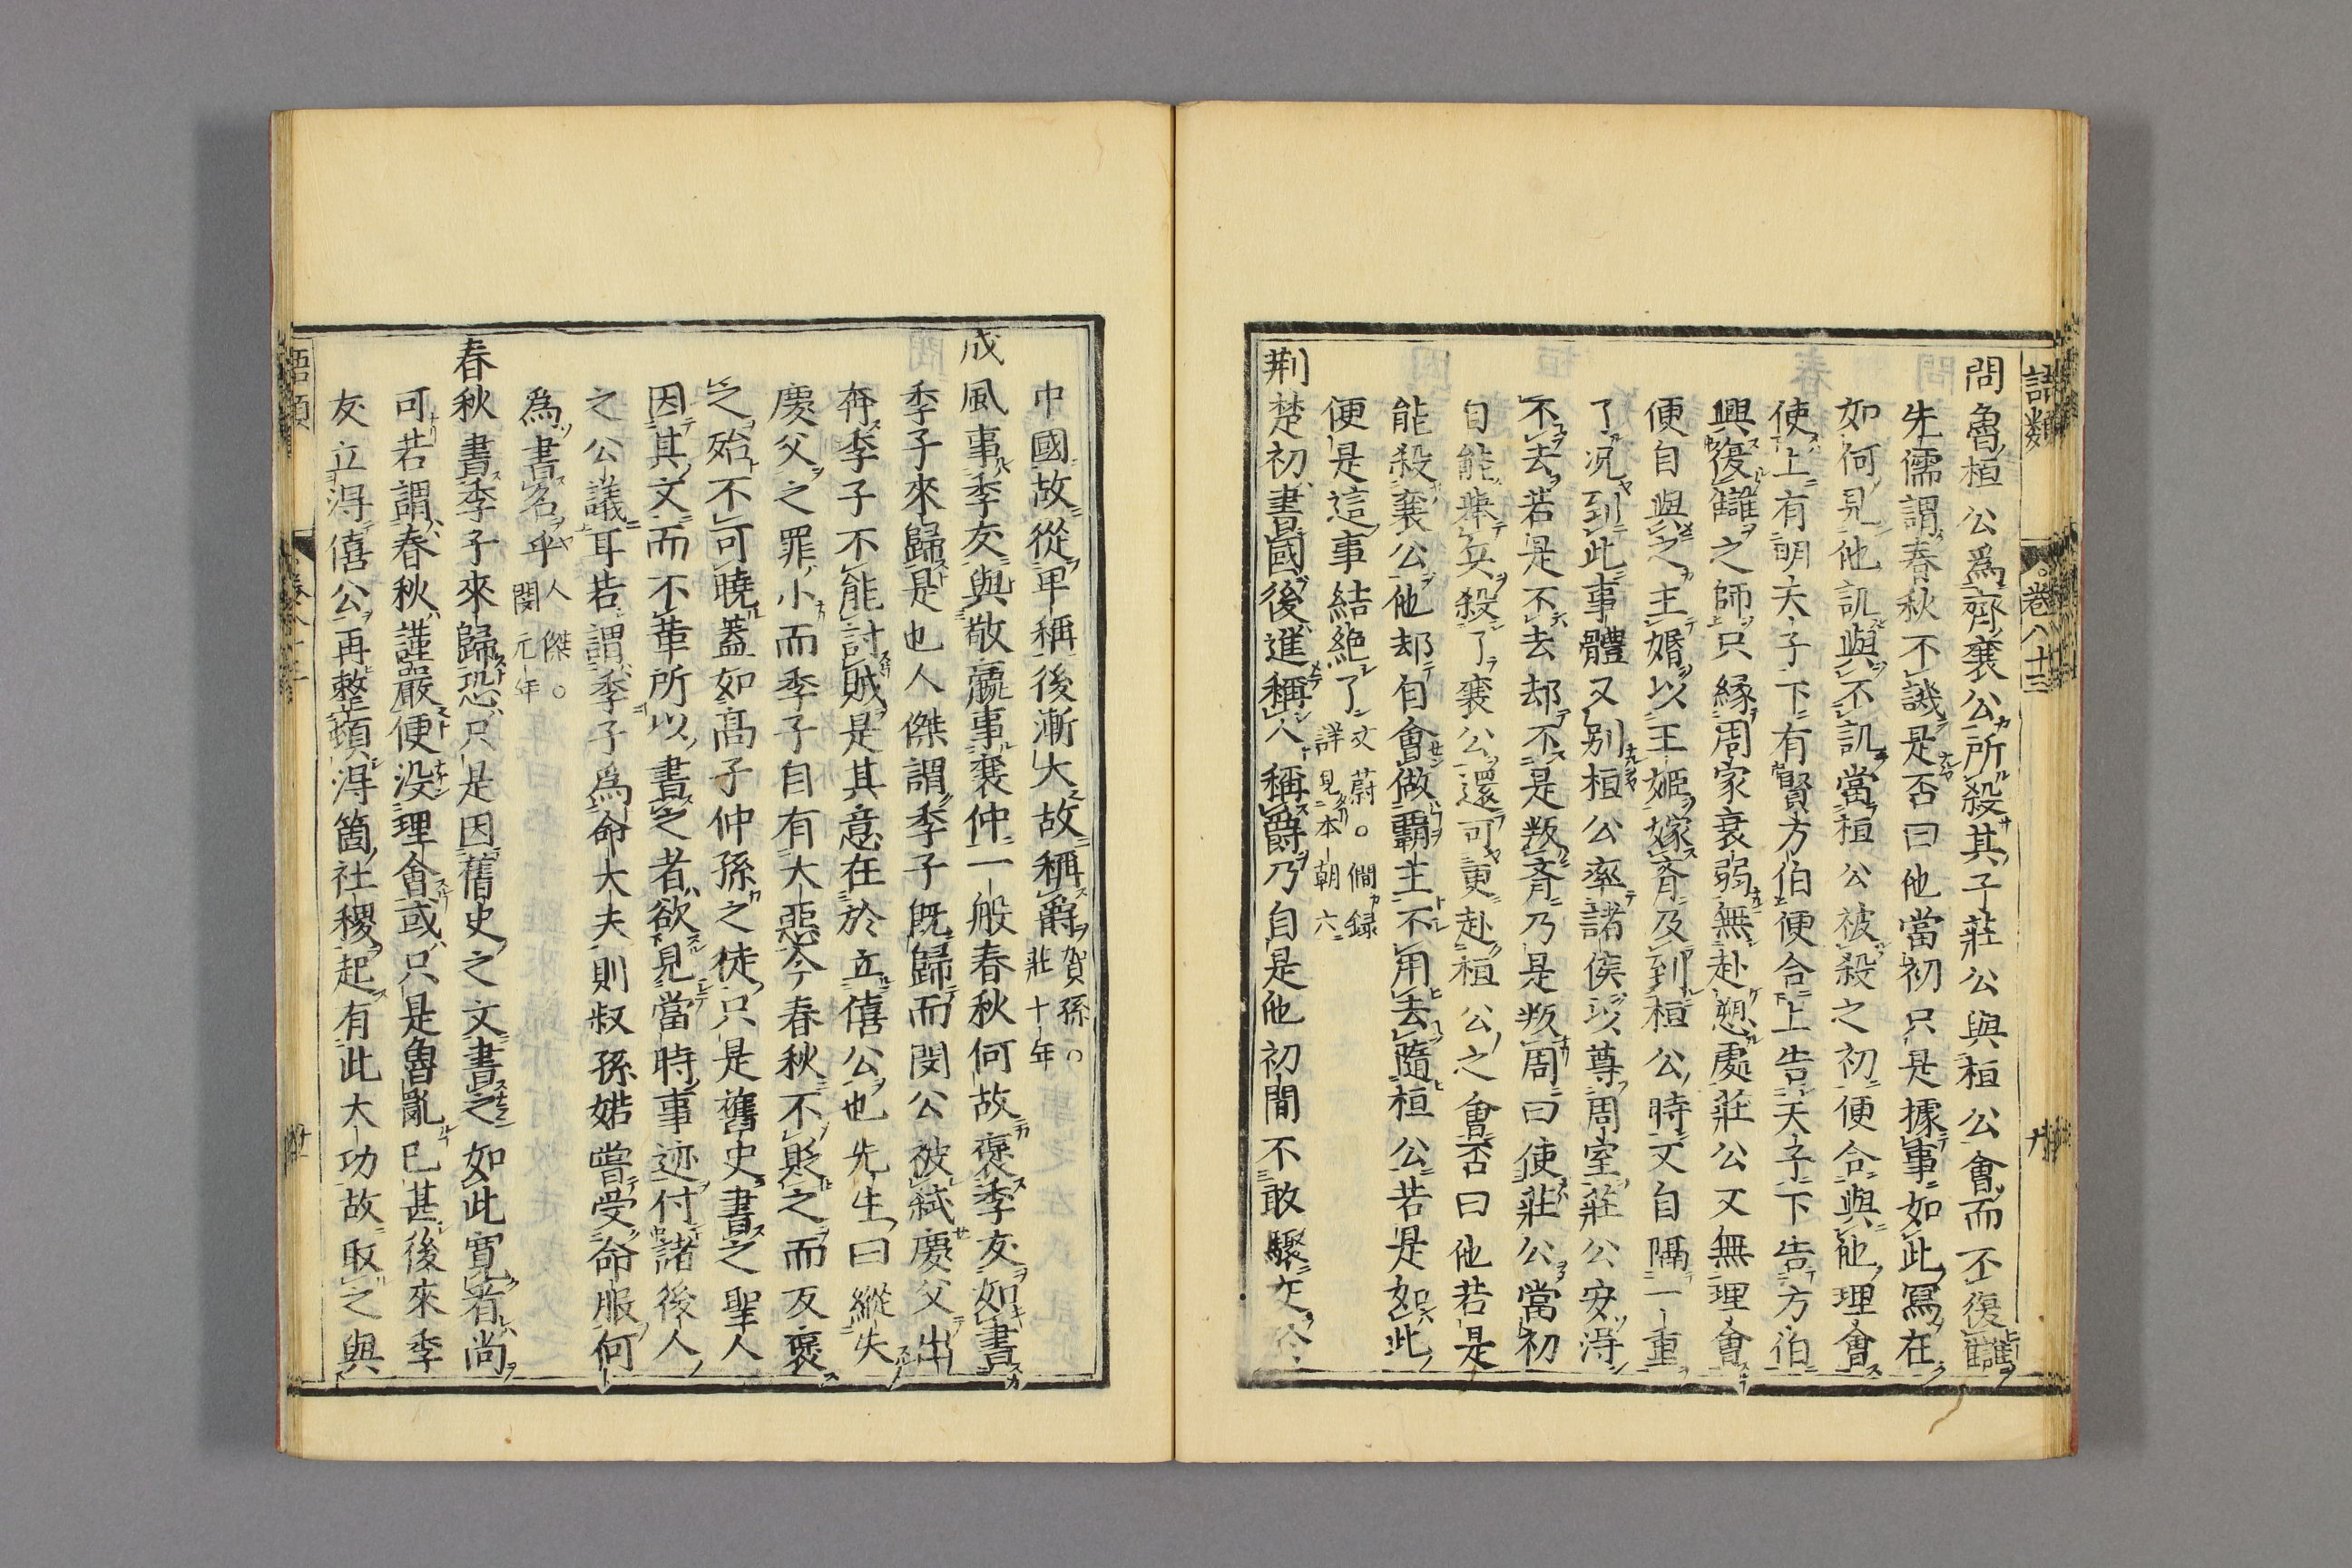 語類
卷八十三
問魯桓公爲齊襄公所殺其子莊公與桓公會而不復讎
先儒謂春秋不譏是否曰他當初只是據事如此寫在
如何見他譏與不譏當桓公被殺之初便合與他理會
使上有明天子下有賢方伯便合上告天子下告方伯
興復讎之師只緣周家衰弱無赴愬處莊公又無理會
便自與之主婚以王姬嫁齊及到桓公時又自隔一重
了況到此事體又别桓公率諸侯以尊周室莊公安得
不去若是不去却不是叛齊乃是叛周曰使莊公當初
自能舉兵殺了襄公還可更赴桓公之會否曰他若是
能殺襄公他却自會做覇主不用去隨桓公若是如此
便是這事結絶了
文蔚○僩録
詳見本朝六
荆楚初書國後進稱人稱爵乃自是他初間不敢驟交
中國故從卑稱後漸大故稱爵
賀孫○
莊十年
成風事季友與敬嬴事襄仲一般春秋何故褒季友如書
季子來歸是也人傑謂季子旣歸而閔公被弑慶父出
奔季子不能討賊是其意在於立僖公也先生曰縱失
慶父之罪小而季子自有大惡今春秋不貶之而反褒
之殆不可曉蓋如高子仲孫之徒只是舊史書之聖人
因其文而不革所以書之者欲見當時事迹付諸後人
之公議耳若謂季子爲命大夫則叔孫婼嘗受命服何
爲書名乎
人傑○
閔元年
春秋書季子來歸恐只是因舊史之文書之如此寛看尚
可若謂春秋謹嚴便没理會或只是魯亂已甚後來季
友立得僖公再整頓得箇社稷起有此大功故取之與
語類